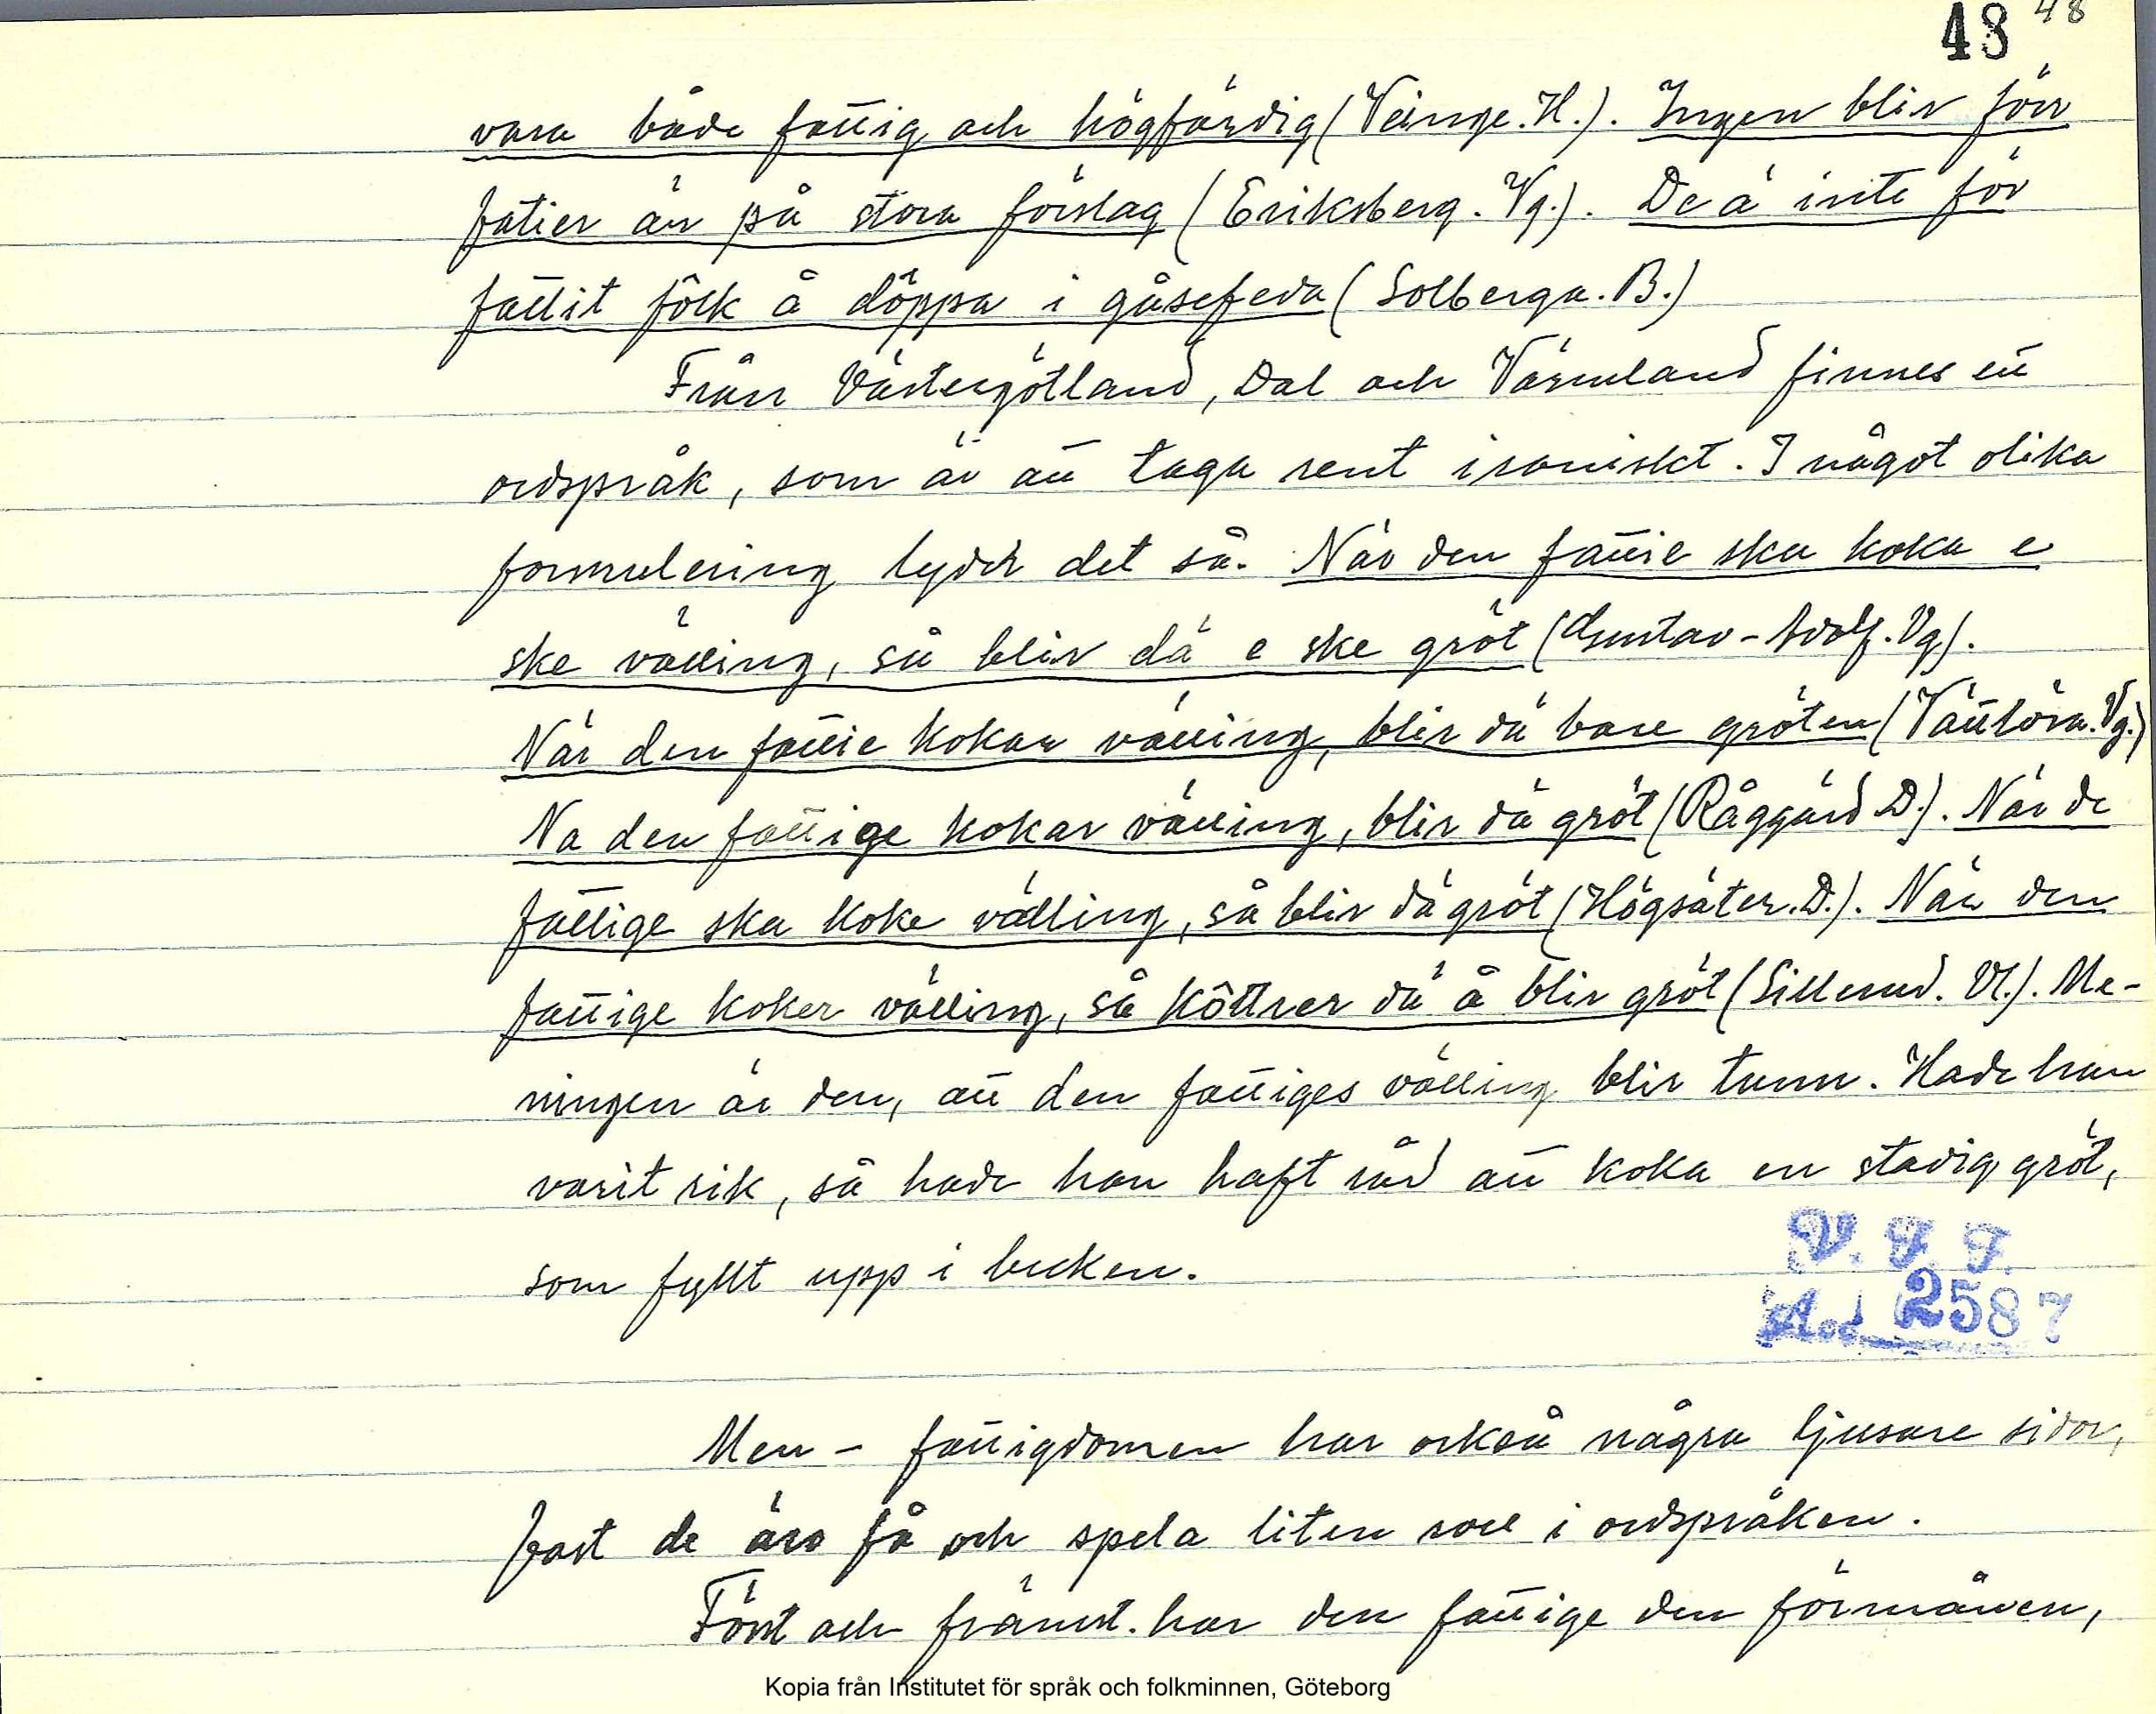 48 48
vara både fattig och högfärdig (Veinge. H.). Ingen blir förr
fatier än på stora förslag (Eriksberg. Vg.). De ä inte för
fattit fôlk å döppa i gåsefeda (Solberga. B.)
Från Västergötland, Dal och Värmland finnes ett
ordspråk, som är att taga rent ironiskt. I något olika
formulering lyder det så. När den fattie ska koka e
ske välling, så blir dä e ske gröt (Gustav-Adolf. Vg).
När den fattie kokar välling, blir dä bare gröten (Vättlösa. Vg.)
Na den fattige kokar välling, blir dä gröt (Råggärd D.). När de
fattige ska koke välling, så blir dä gröt (Högsäter. D.). När den
fattige koker välling, så kôttner dä å blir gröt (Sillerud. Vl.). Me-
ningen är den, att den fattiges välling blir tunn. Hade han
varit rik, så hade han haft råd att koka en stadig gröt,
som fyllt upp i buken.
V. F. F.
Acc. 2587
Men – fattigdomen har också några ljusare sidor,
fast de äro få och spela liten roll i ordspråken.
Först och främst har den fattige den förmånen,
Kopia från Institutet för språk och folkminnen, Göteborg